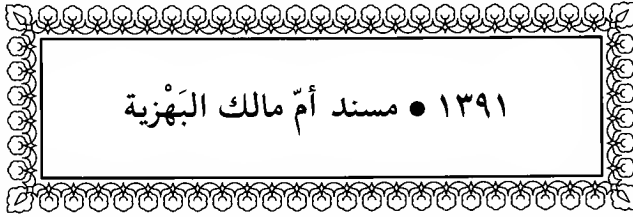 ١٣٩١ ● مسند أمّ مالك البَهْزية